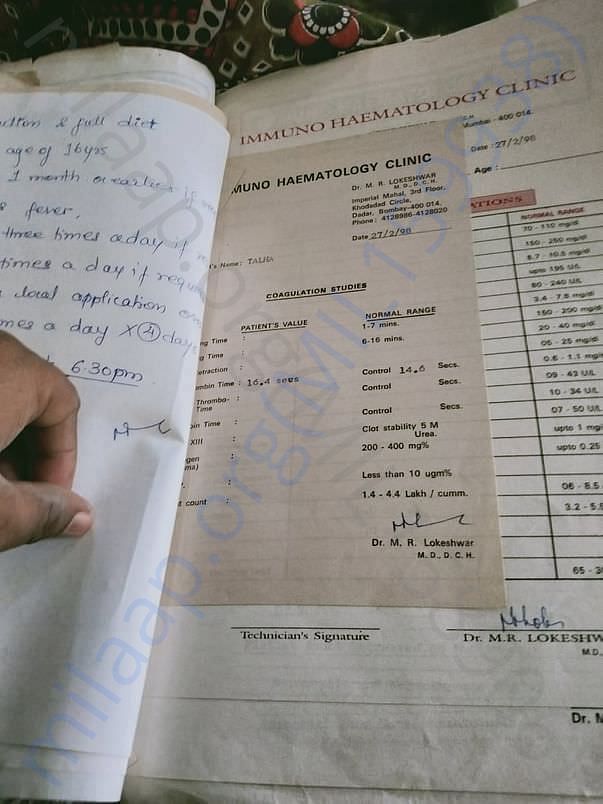 & full diet
age of 16yrs
1 month or earlier if
fever,
three times a day if
times a day if
local application
a day X 4 days
6.30pm
IMMUNO HAEMATOLOGY CLINIC
Mumbai - 400 014.
Date : 27/2/98
Age :
ATIONS
NORMAL RANGE
70 - 110 mg/dl
150 - 250 mg/dl
8.7 - 10.5 mg/dl
upto 195 U/L
80 - 240 U/L
3.4 - 7.8 mg/dl
150 - 200 mg/dl
20 - 40 mg/dl
05 - 25 mg/dl
0.6 - 1.1 mg/
09 - 43 U/L
10 - 34 U/L
07 - 50 U/L
upto 1 mg/
upto 0.25
06 - 8.5
3.2 - 5.
65 - 3
MUNO HAEMATOLOGY CLINIC
Dr. M. R. LOKESHWAR
M. D., D. C. H.
Imperial Mahal, 3rd Floor,
Khodadad Circle,
Dadar, Bombay-400 014.
Phone : 4128986-4128020
Date 27/2/98
's Name : TALHA
COAGULATION STUDIES
PATIENT'S VALUE NORMAL RANGE
ng Time : 1-7 mins.
g Time : 6-16 mins.
etraction :
mbin Time : 16.4 secs Control 14.6 Secs.
Thrombo- : Control Secs.
Time
bin Time : Control Secs.
XIII : Clot stability 5 M
Urea.
gen : 200 - 400 mg%
ma)
: Less than 10 ugm%
t count : 1.4 - 4.4 Lakh / cumm.
Dr. M. R. Lokeshwar
M. D., D. C. H.
Technician's Signature
Dr. M.R. LOKESHW
M.D.,
Dr. M
milaap.org(MIL159938)